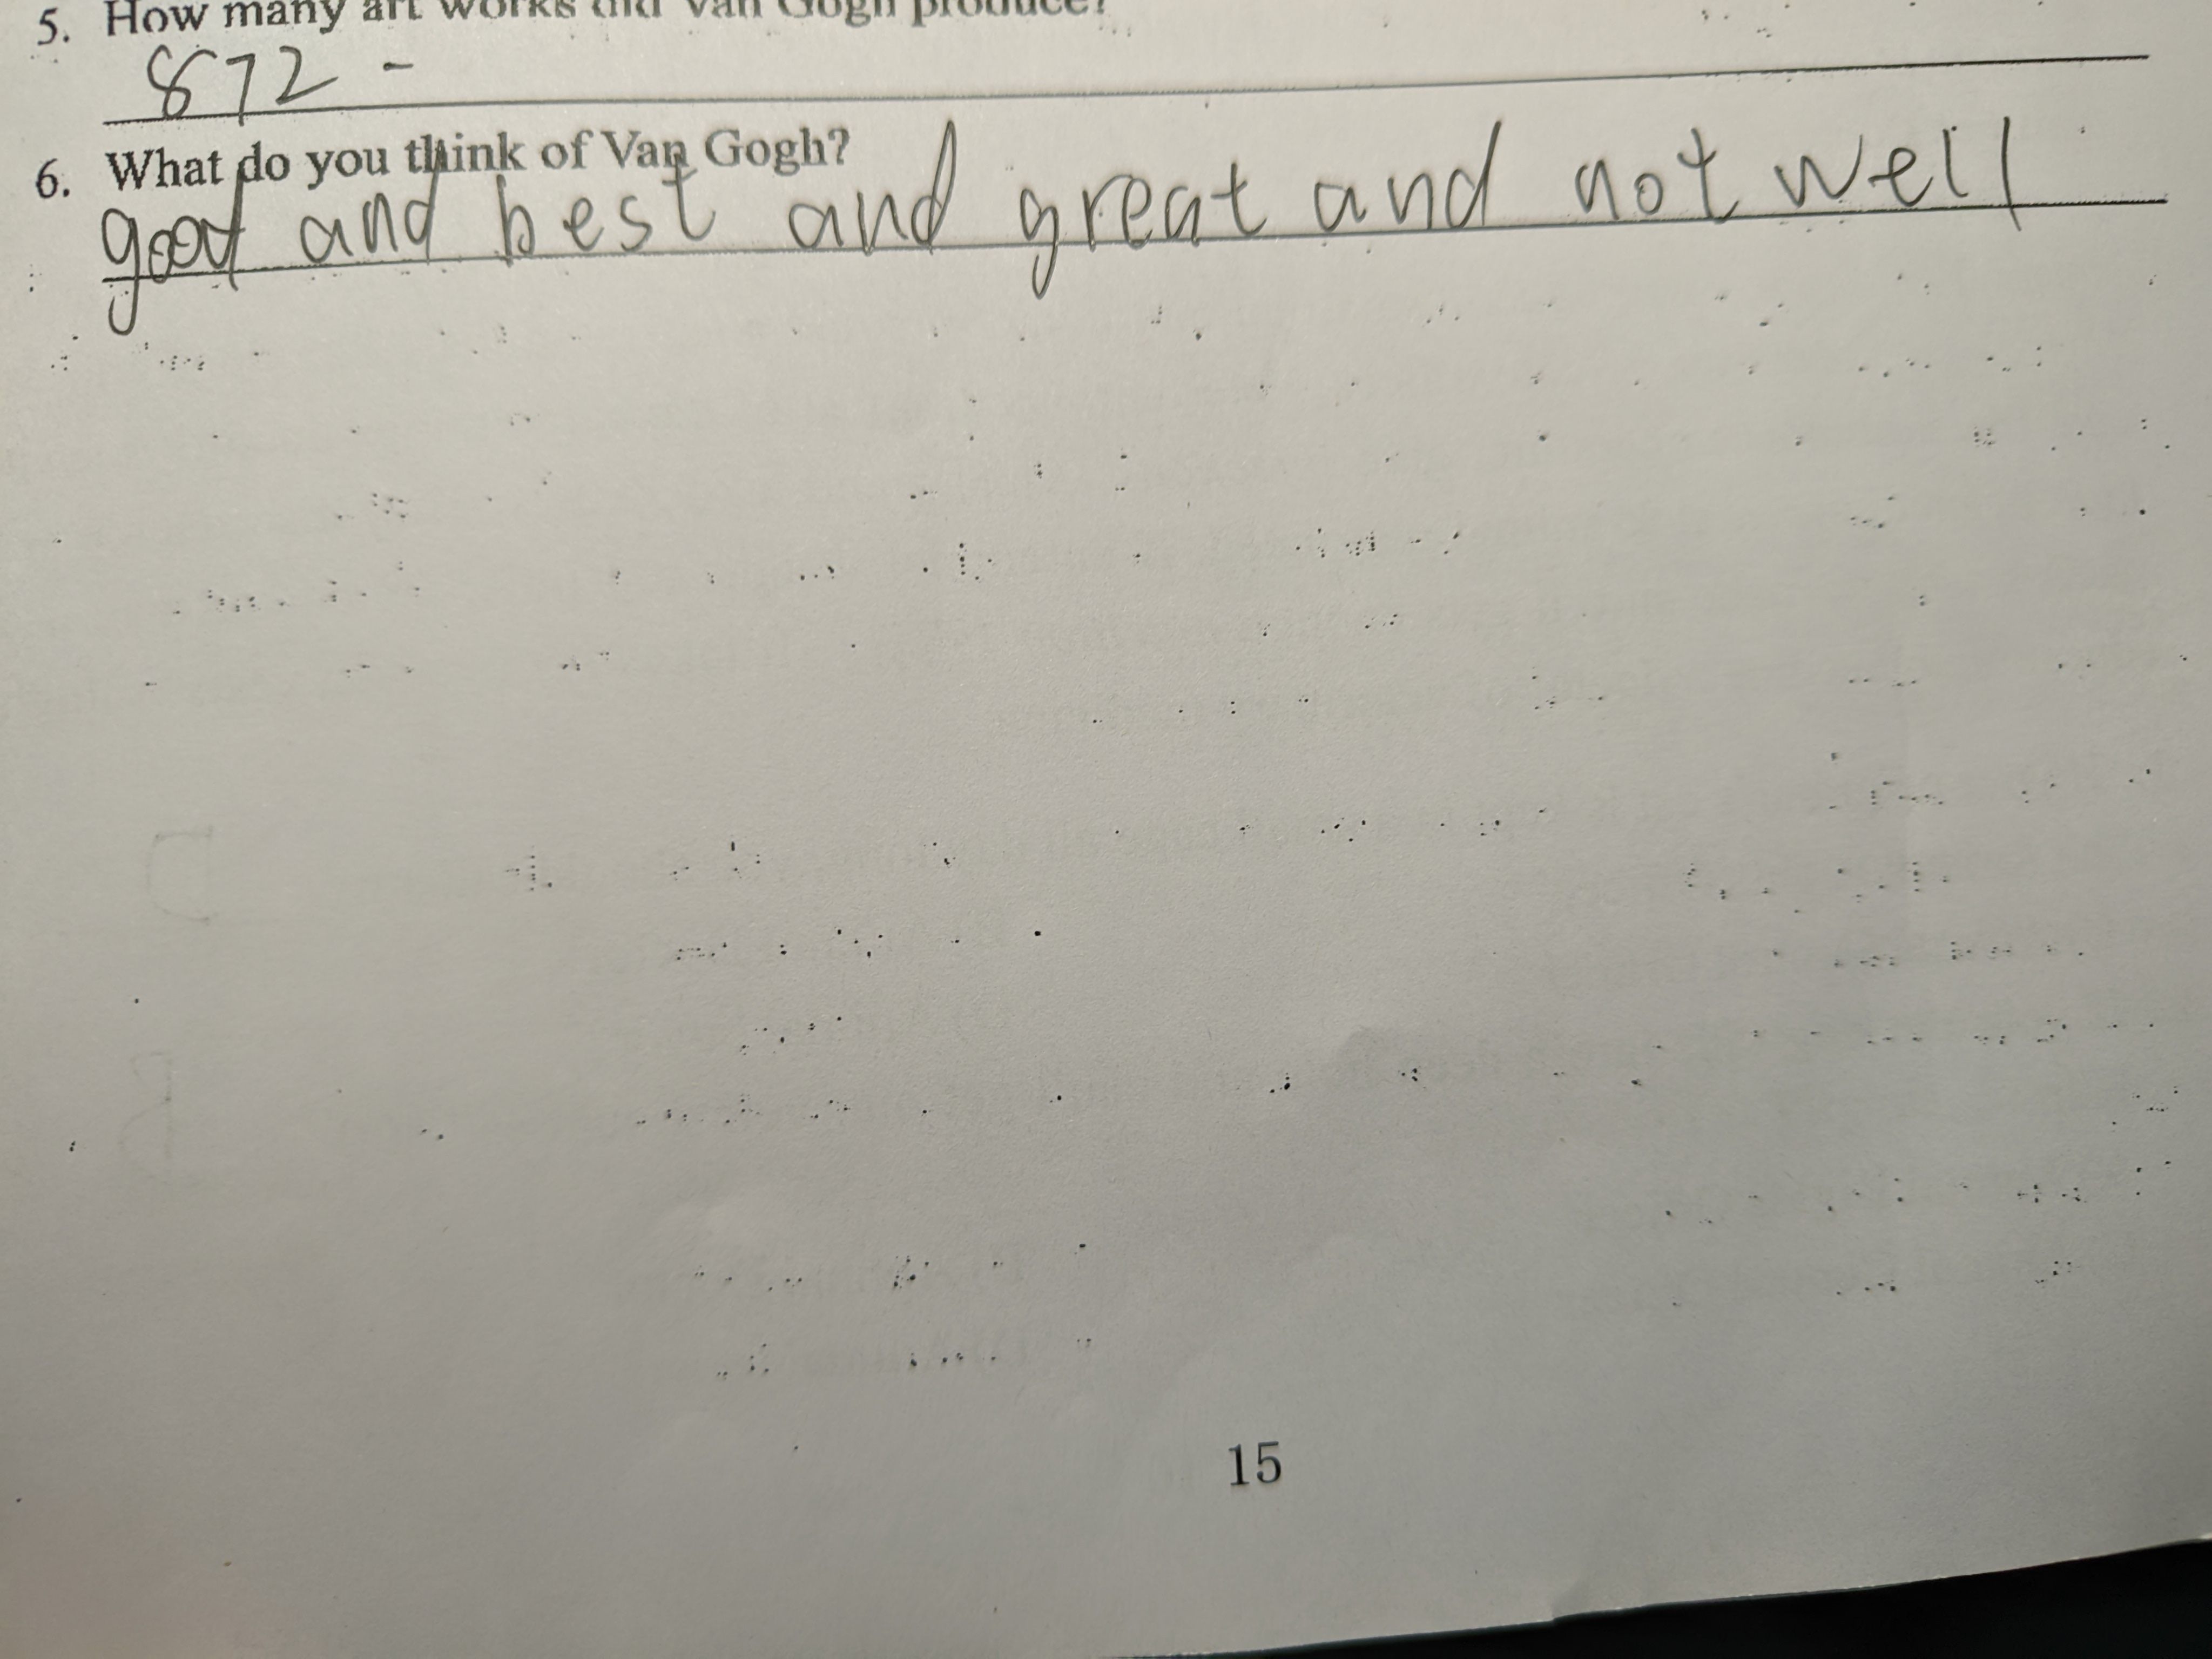 5. How many art works did Van Gogh produce?
872 -
6. What do you think of Van Gogh?
good and best and great and not well
15